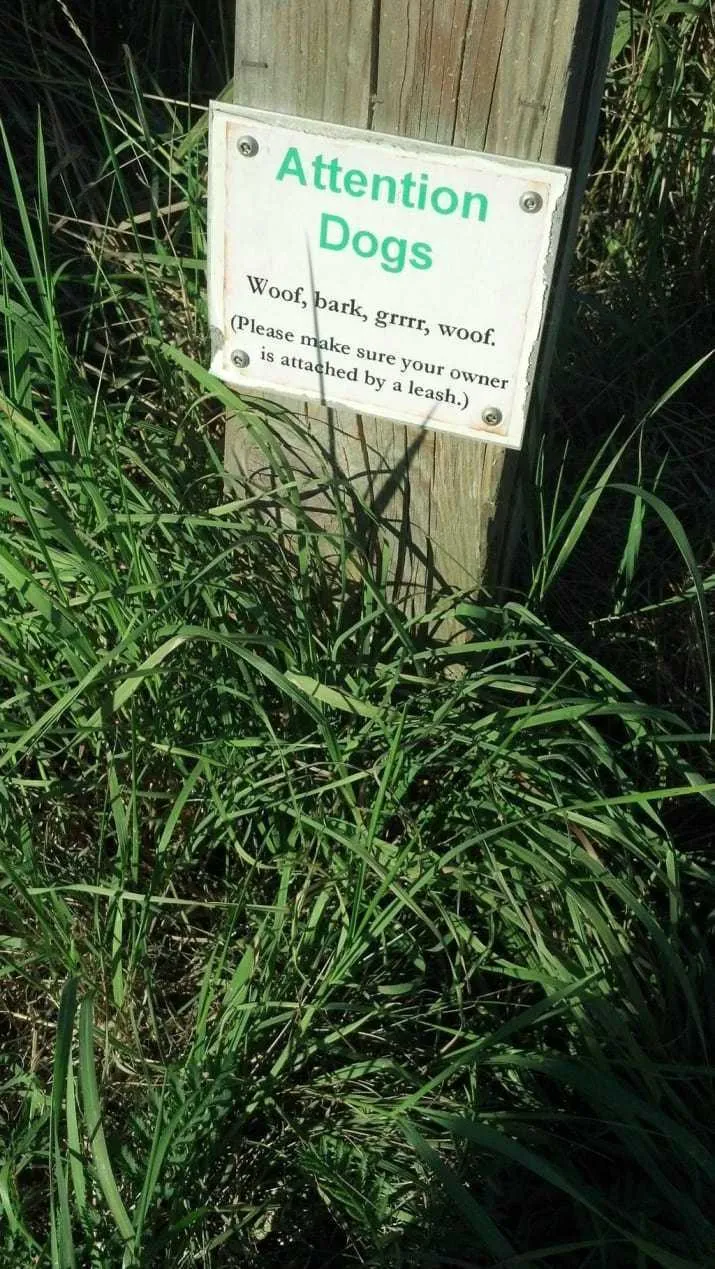 Attention
Dogs
Woof, bark, grrrr, woof.
(Please make sure your owner
is attached by a leash.)